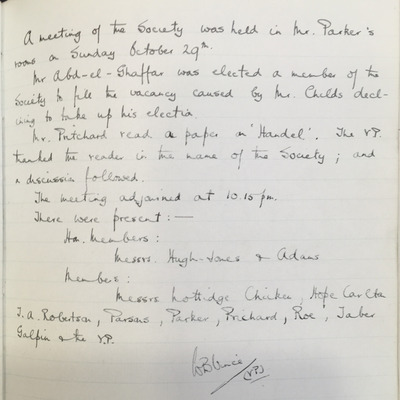 A meeting of the Society was held in Mr. Parker's
rooms on Sunday October 29th.
Mr Abd-el-Ghaffar was elected a member of the
Society to fill the vacancy caused by Mr. Childs decl-
ining to take up his election.
Mr. Pritchard read a paper on 'Handel'. The V.P.
thanked the reader in the name of the Society; and
a discussion followed.
The meeting adjourned at 10.15 pm.
There were present:—
Hon. Members:
Messrs. Hugh-Jones & Adams
Members:
Messrs Lottidge Chicken, Hope Carlton
J.A. Robertson, Parsons, Parker, Prichard, Roe, Jaber
Galpin & the V.P.
(V.P.)